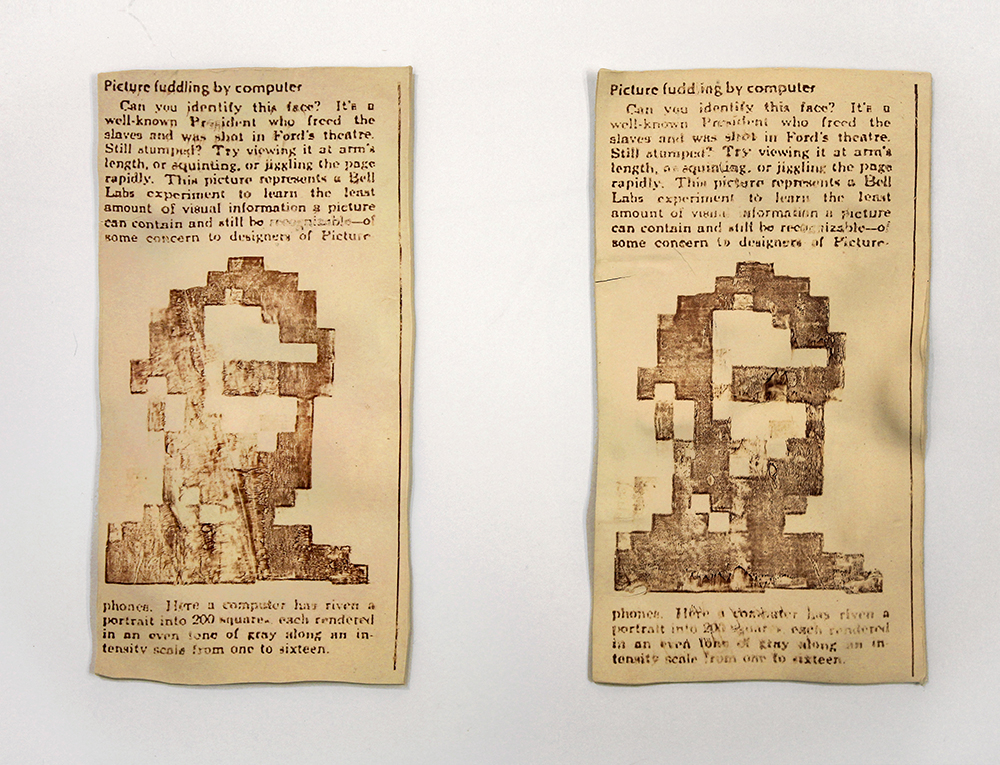 Picture fuddling by computer
Can you identify this face? It's a
well-known President who freed the
slaves and was shot in Ford's theatre.
Still stumped? Try viewing it at arm's
length, or squinting, or jiggling the page
rapidly. This picture represents a Bell
Labs experiment to learn the least
amount of visual information a picture
can contain and still be recognizable—of
some concern to designers of Picture-
phones. Here a computer has riven a
portrait into 200 squares, each rendered
in an even tone of gray along an in-
tensity scale from one to sixteen.
Picture fuddling by computer
Can you identify this face? It's a
well-known President who freed the
slaves and was shot in Ford's theatre.
Still stumped? Try viewing it at arm's
length, or squinting, or jiggling the page
rapidly. This picture represents a Bell
Labs experiment to learn the least
amount of visual information a picture
can contain and still be recognizable—of
some concern to designers of Picture-
phones. Here a computer has riven a
portrait into 200 squares, each rendered
in an even tone of gray along an in-
tensity scale from one to sixteen.